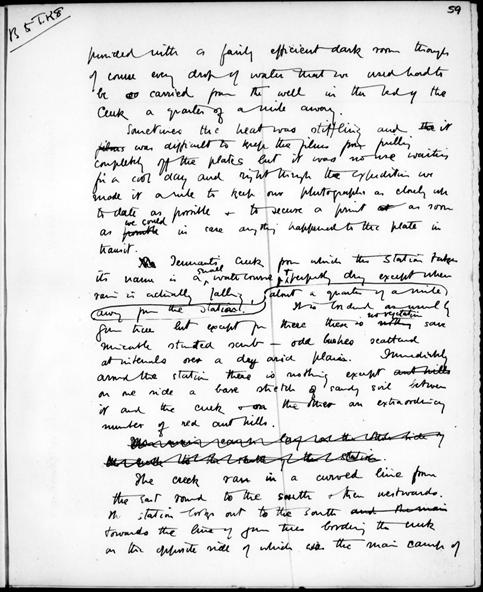 B 5 T.K8
59
provided with a fairly efficient dark room though
of course every drop of water that we used had to
be so carried from the well in the bed of the
Creek a quarter of a mile away.
Sometimes the heat was stifling and the it
films was difficult to keep the films from frilling
completely off the plates but it was no use waiting
for a cool day and right through the expedition we
made it a rule to keep our photographs as closely up
to date as possible + to secure a print at as soon
as possible we could in case anything happened to the plate in
transit.
Tennants Creek from which this Station takes
its name is a small watercourse perfectly dry except when
rain is actually falling, about a quarter of a mile
away from the Station. It is bordered as usual by
gum trees but except for these there is nothing no vegetation save
miserable stunted scrub - odd bushes scattered
at intervals over a dry arid plain. Immediately
around the station there is nothing except ant hills
on one side a bare stretch of sandy soil between
it and the creek + on the other an extraordinary
number of red ant hills.
The main camp lay on the other side of
the creek to the south of the station.
The creek ran in a curved line from
the east round to the south + then westwards.
The station looks out to the south and the main
towards the line of gum trees bordering the creek
on the opposite side of which was the main camp of